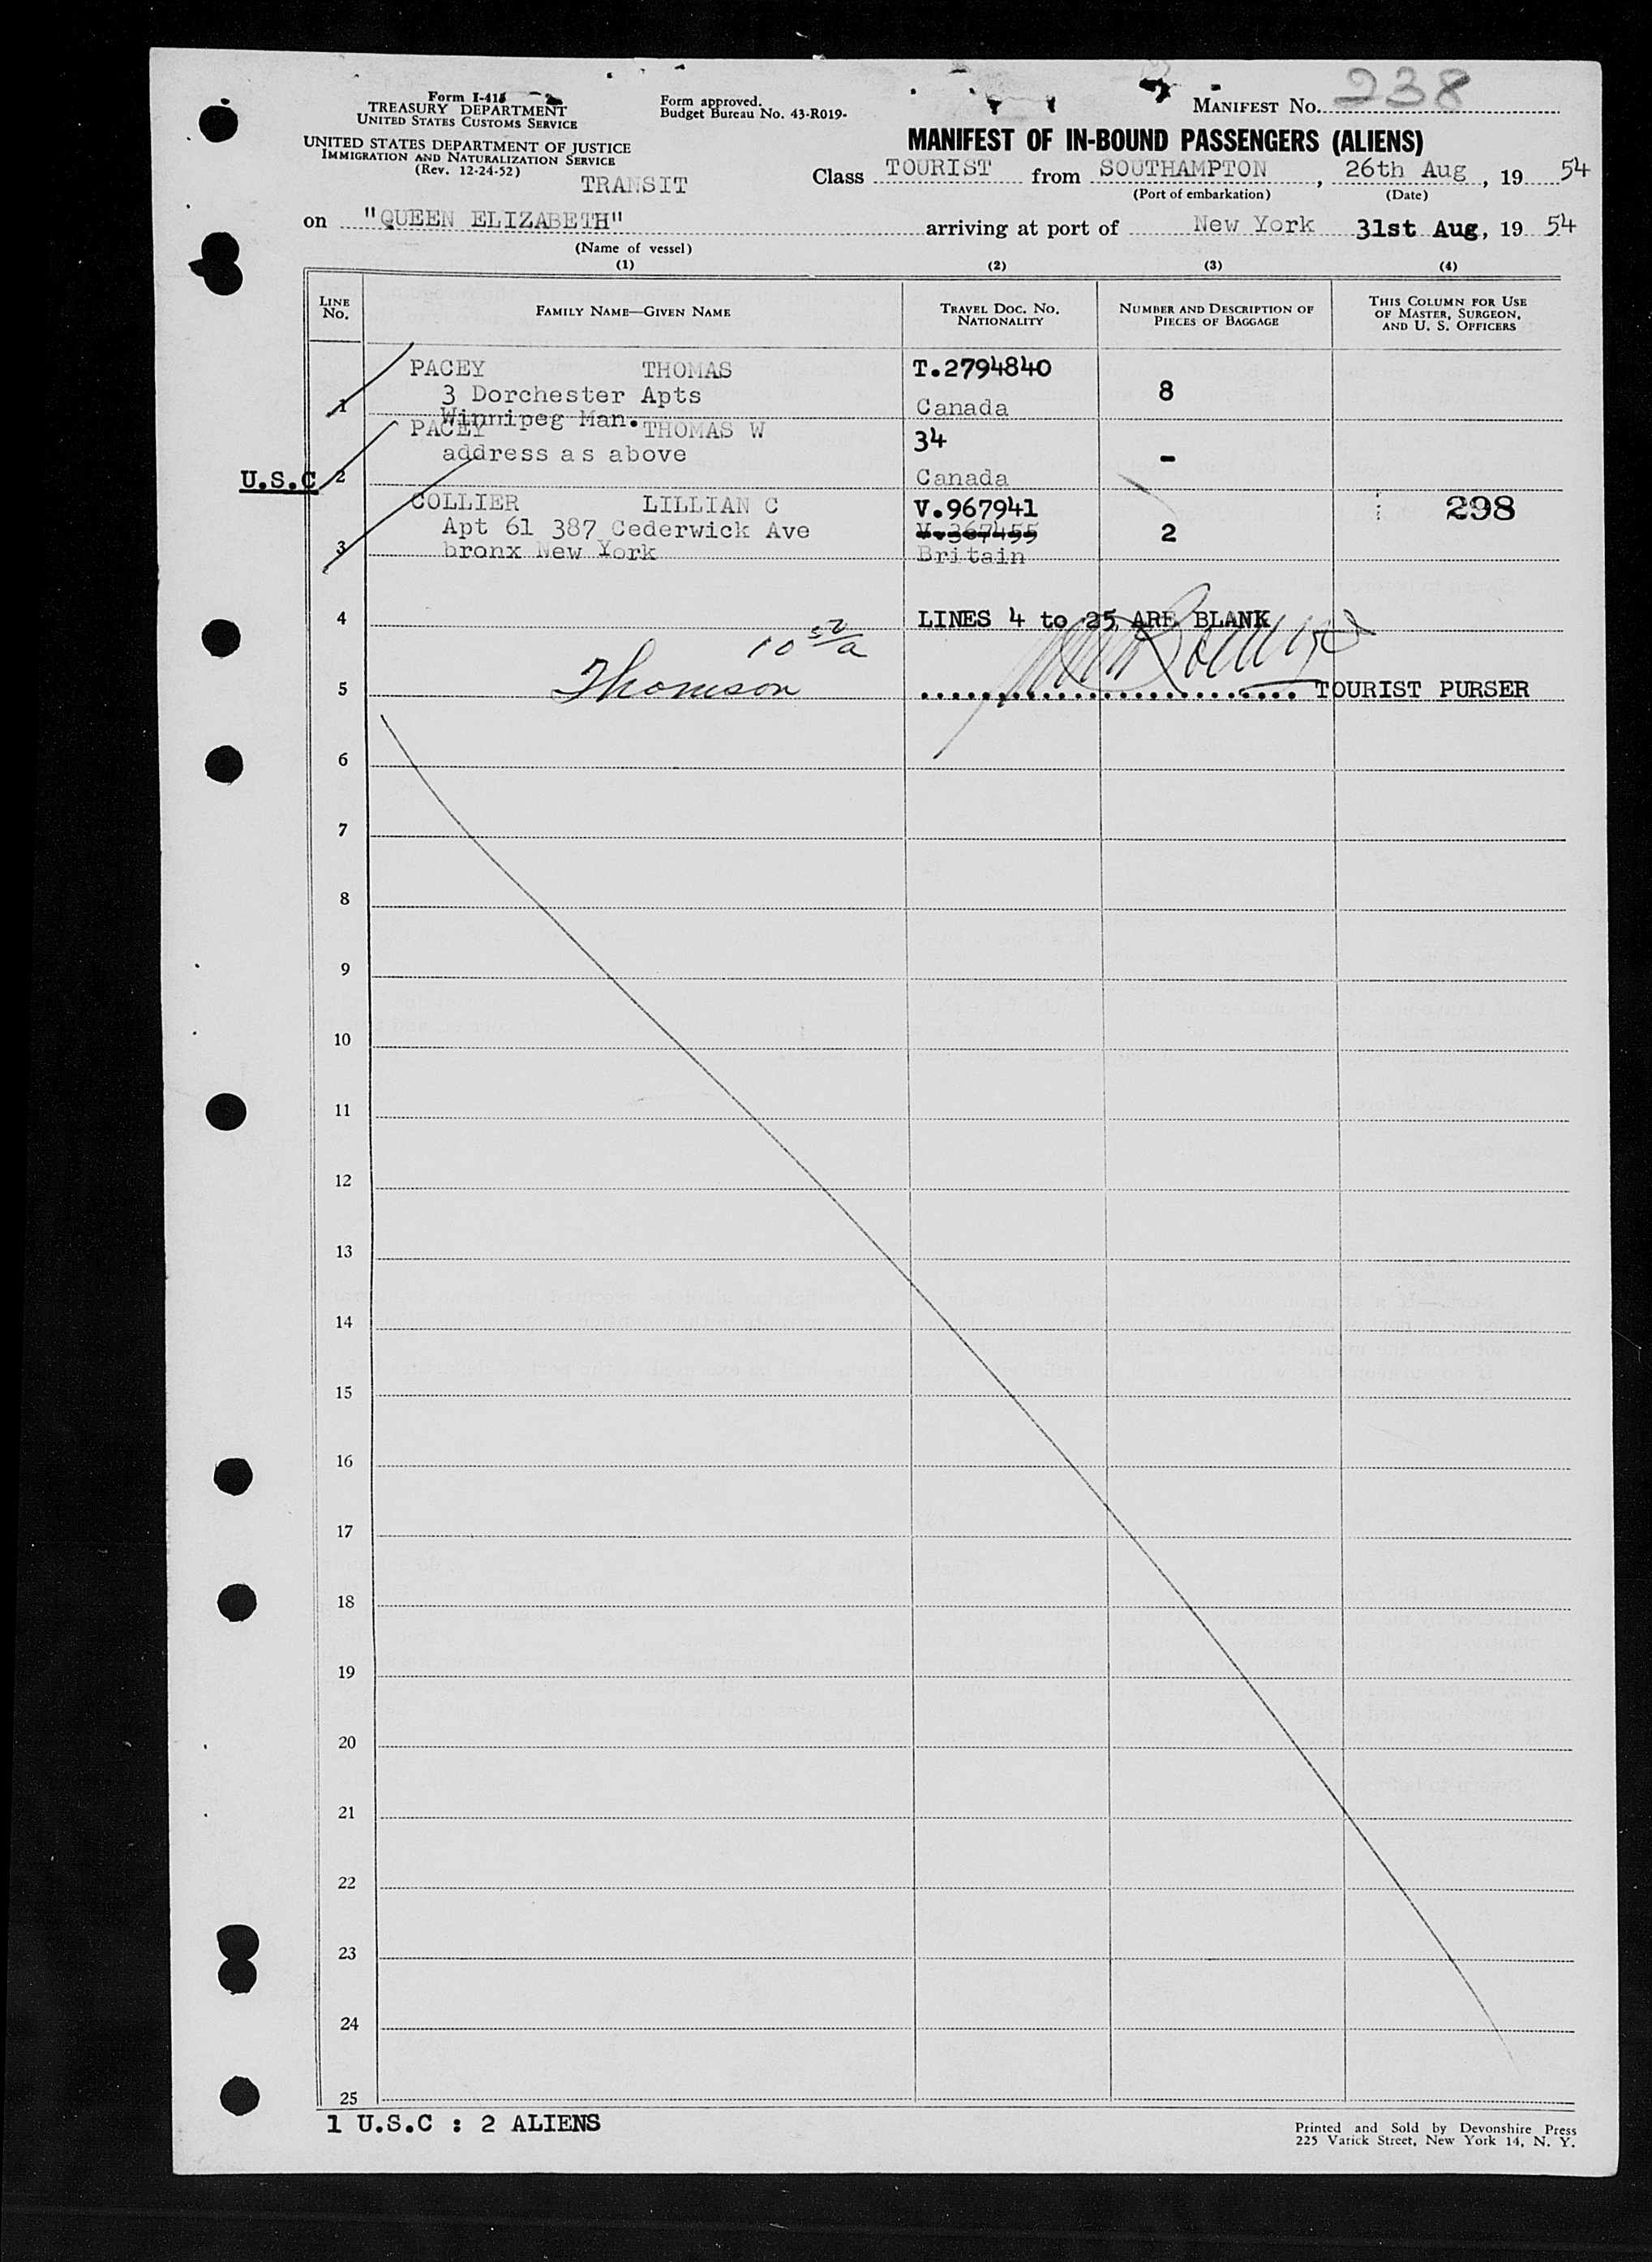 Form I-418
TREASURY DEPARTMENT
UNITED STATES CUSTOMS SERVICE
UNITED STATES DEPARTMENT OF JUSTICE
IMMIGRATION AND NATURALIZATION SERVICE
(Rev. 12-24-52)
TRANSIT
Form approved.
Budget Bureau No. 43-R019-
MANIFEST No. 238
MANIFEST OF IN-BOUND PASSENGERS (ALIENS)
Class TOURIST from SOUTHAMPTON, 26th Aug, 19 54
(Port of embarkation) (Date)
on "QUEEN ELIZABETH" arriving at port of New York 31st Aug, 19 54
(Name of vessel)
(1) (2) (3) (4)
LINE No. FAMILY NAME—GIVEN NAME TRAVEL DOC. NO. NATIONALITY NUMBER AND DESCRIPTION OF PIECES OF BAGGAGE THIS COLUMN FOR USE OF MASTER, SURGEON, AND U. S. OFFICERS
PACEY THOMAS T.2794840
3 Dorchester Apts 8
1 Winnipeg Man. Canada
PACEY THOMAS W 34
address as above -
U.S.C 2 Canada
COLLIER LILLIAN C V.967941 298
Apt 61 387 Cederwick Ave V.367455 2
3 bronx New York Britain
4 LINES 4 to 25 ARE BLANK
10 52/a
5 Thomson TOURIST PURSER
6
7
8
9
10
11
12
13
14
15
16
17
18
19
20
21
22
23
24
25
1 U.S.C : 2 ALIENS
Printed and Sold by Devonshire Press
225 Varick Street, New York 14, N. Y.